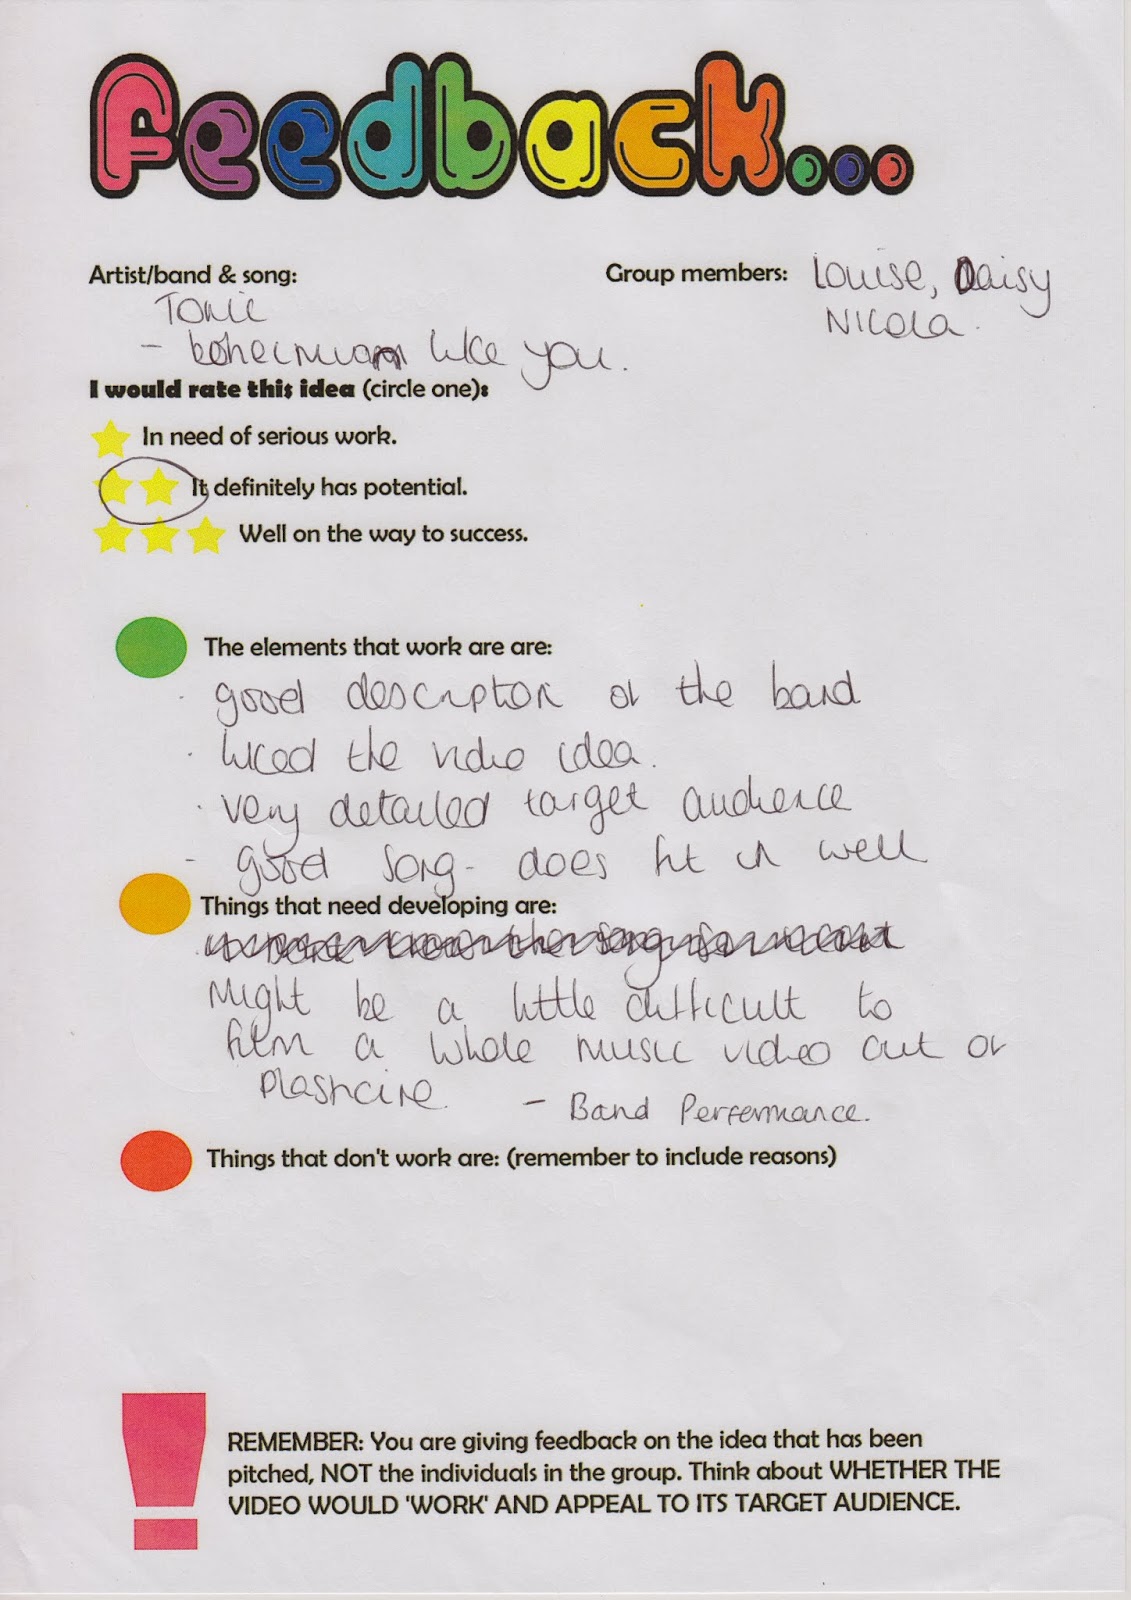 Feedback...
Artist/band & song:
Group members: Louise, Daisy
Nicola.
Tonic
- bohemian like you.
I would rate this idea (circle one):
In need of serious work.
It definitely has potential.
Well on the way to success.
The elements that work are are:
· good description of the band
· liked the video idea.
· very detailed target audience
- good song - does fit in well
Things that need developing are:
Might be a little difficult to
film a whole music video out of
plasticine. - Band Performance.
Things that don't work are: (remember to include reasons)
REMEMBER: You are giving feedback on the idea that has been
pitched, NOT the individuals in the group. Think about WHETHER THE
VIDEO WOULD 'WORK' AND APPEAL TO ITS TARGET AUDIENCE.